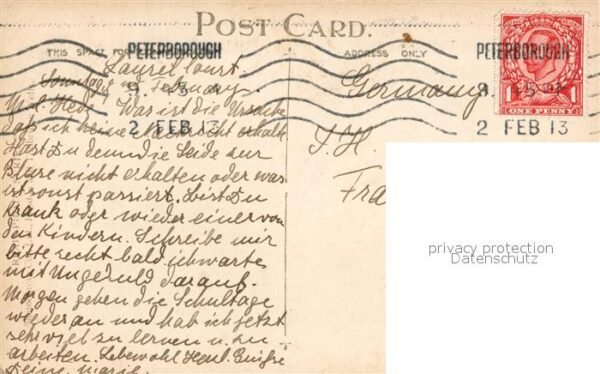 POST CARD.
THIS SPACE FOR
ADDRESS ONLY
PETERBOROUGH
9. PM
2 FEB 13
PETERBOROUGH
2 FEB 13
1 1
ONE PENNY
Laurel Court.
Sonntag February
Was ist die Ursache
daß ich keine Nachricht erhalte
Hast Du denn die Seide zur
Bluse nicht erhalten oder was
ist sonst passiert. bist Du
Krank oder wieder einer von
den Kindern. Schreibe mir
bitte recht bald ich warte
mit Ungeduld darauf.
Morgen gehen die Schultage
wieder an und hab ich jetzt
sehr viel zu lernen u. zu
arbeiten. Lebewohl
Deine Marie.
Germany.
Fra
privacy protection
Datenschutz